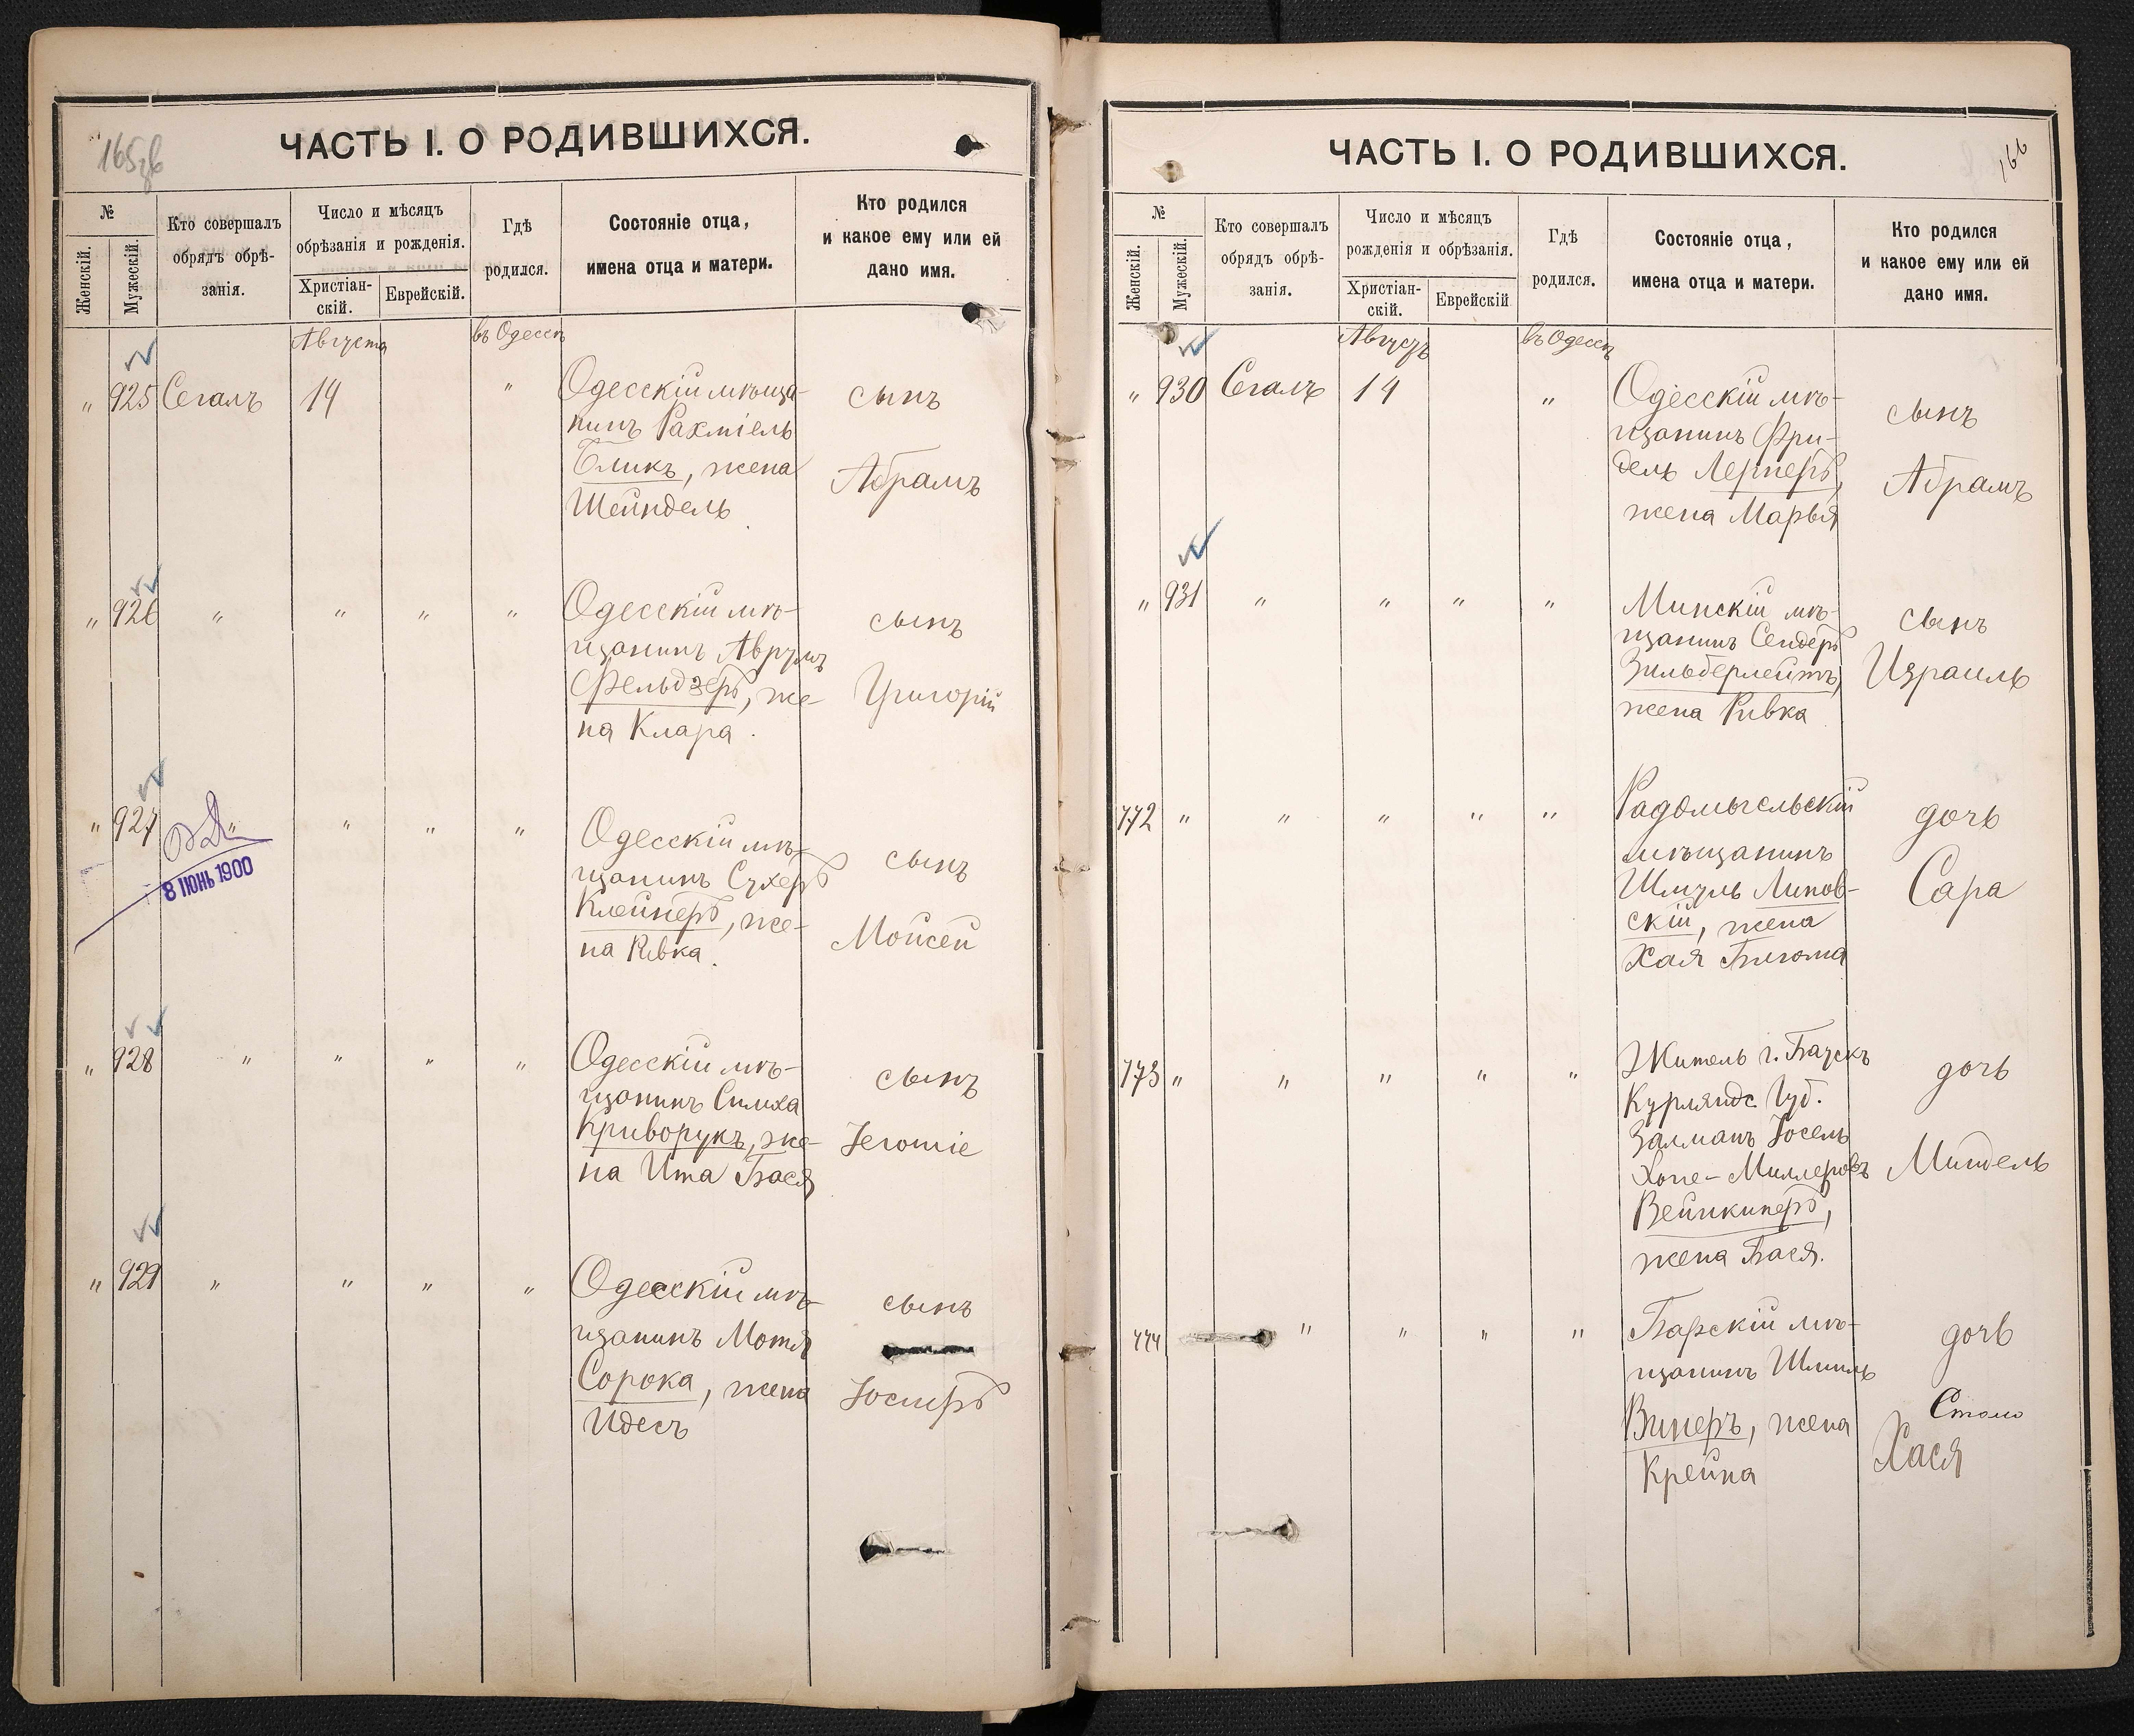 165 об
ЧАСТЬ I. О РОДИВШИХСЯ.
№
Женскій.
Мужескій.
Кто совершалъ
обрядъ обрѣ-
занія.
Число и мѣсяцъ
обрѣзанія и рожденія.
Христіан-
скій.
Еврейскій.
Гдѣ
родился.
Состояніе отца,
имена отца и матери.
Кто родился
и какое ему или ей
дано имя.
Августа
въ Одессѣ
" 925 Сегалъ 14 " Одесскій мѣща-
нинъ Рахміель
Бликъ, жена
Шейндель
сынъ
Абрамъ
" 926 " " " " Одесскій мѣ-
щанинъ Аврумъ
Фельдзеръ, же-
на Клара.
сынъ
Григорій
" 927 " " " " Одесскій мѣ-
щанинъ Сухеръ
Клейнеръ, же-
на Ривка.
сынъ
Мойсей
8 ІЮНЬ 1900
" 928 " " " " Одесскій мѣ-
щанинъ Симха
Криворукъ, же-
на Ита Бася
сынъ
" 929 " " " " Одесскій мѣ-
щанинъ Мотя
Сорока, жена
Идесъ
сынъ
Іосифъ
166
ЧАСТЬ I. О РОДИВШИХСЯ.
№
Женскій.
Мужескій.
Кто совершалъ
обрядъ обрѣ-
занія.
Число и мѣсяцъ
рожденія и обрѣзанія.
Христіан-
скій.
Еврейскій
Гдѣ
родился.
Состояніе отца,
имена отца и матери.
Кто родился
и какое ему или ей
дано имя.
Августъ
въ Одессѣ
" 930 Сегалъ 14 " Одесскій мѣ-
щанинъ Фри-
дель Лернеръ,
жена Марья
сынъ
Абрамъ
" 931 " " " " Минскій мѣ-
щанинъ Сендеръ
Зильберлейтъ,
жена Ривка
сынъ
Израиль
772 " " " " " Радомысльскій
мѣщанинъ
Шмуль Липов-
скій, жена
Хая
дочь
Сара
773 " " " " " Житель г. Баускъ
Курляндс. Губ.
Залманъ Іосель
Вейнкинеръ,
жена Бася.
дочь
Миндель
774 " " " " Барскій мѣ-
щанинъ Шмиль
Винеръ, жена
Крейна
дочь
Хася